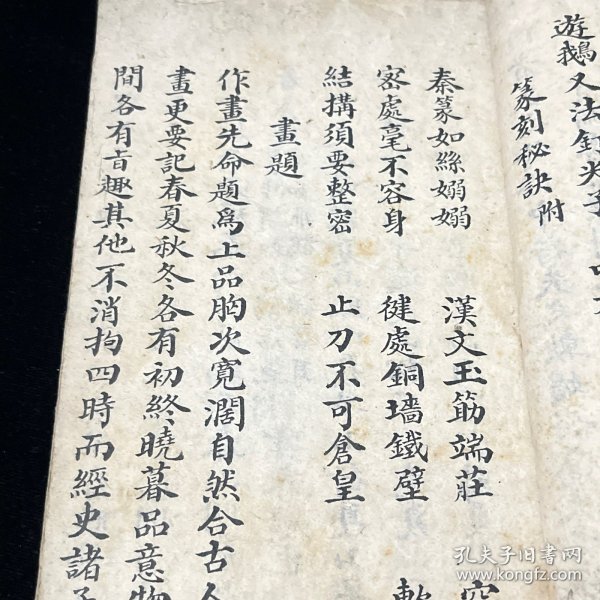 遊鵝
篆刻秘訣附
秦篆如絲嫋嫋 漢文玉筯端莊
密處毫不容身 健處銅墻鐵壁
結搆須要整密 止刀不可倉皇
畫題
作畫先命題爲上品胸次寬濶自然合古人
畫更要記春夏秋冬各有初終曉暮品意物
間各有旨趣其他不消拘四時而經史諸子
孔夫子旧书网
www.kongfz.com